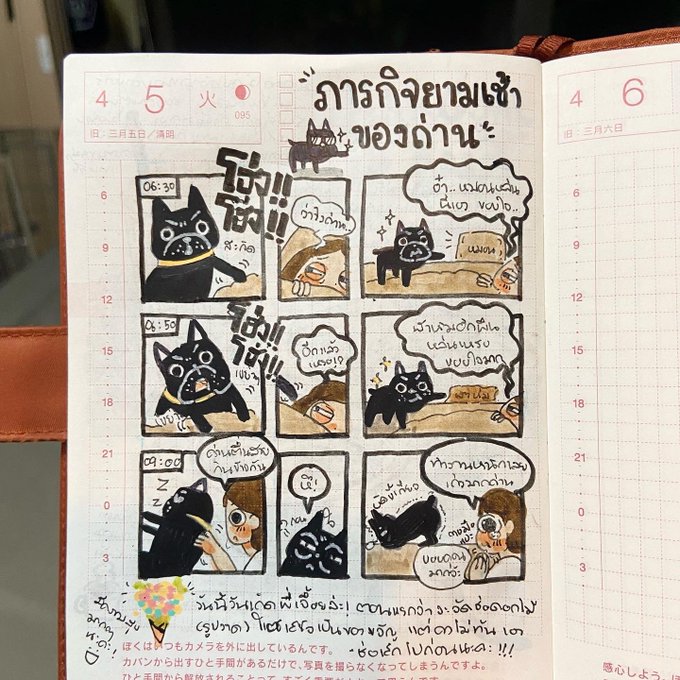 4 5 火 095
旧：三月五日／清明
4 6
旧：三月六日
ภารกิจยามเช้า
ของถ่าน
06:30
โฮ่ง!!
โฮ่ง!!
สะกิด
ว่าไงถ่าน..
อ๋า..หมอนหล่น
นี่เอง ขอบใจ..
หมอน
06:50
โฮ่ง!!
โฮ่ง!!
เขย่า
เขย่า
อีกแล้ว
เหรอ!?
ผ้าห่มอีกผืน
หล่นเหรอ
ขอบใจมาก
ผ้าห่ม
09:00
Z
Z
ถ่านตื่นสาย
หึ!
บิดขี้เกียจ
ทำงานหนักเลย
เก่งมากถ่าน
ขอบคุณ
มากว่ะ
วันนี้วันเกิด
ตอนแรกว่าจะจัดช่อดอกไม้
(รูปวาด)
เป็นของขวัญ แต่
ไม่ทัน เอา
ช่อเล็กไปก่อนนะคะ !!!
:D
6
9
12
15
18
21
0
3
6
9
12
15
18
21
0
3
ぼくはいつもカメラを外に出しているんです。
カバンから出すひと手間があるだけで、写真を撮らなくなってしまうんですよ。
感心しよう。ほ